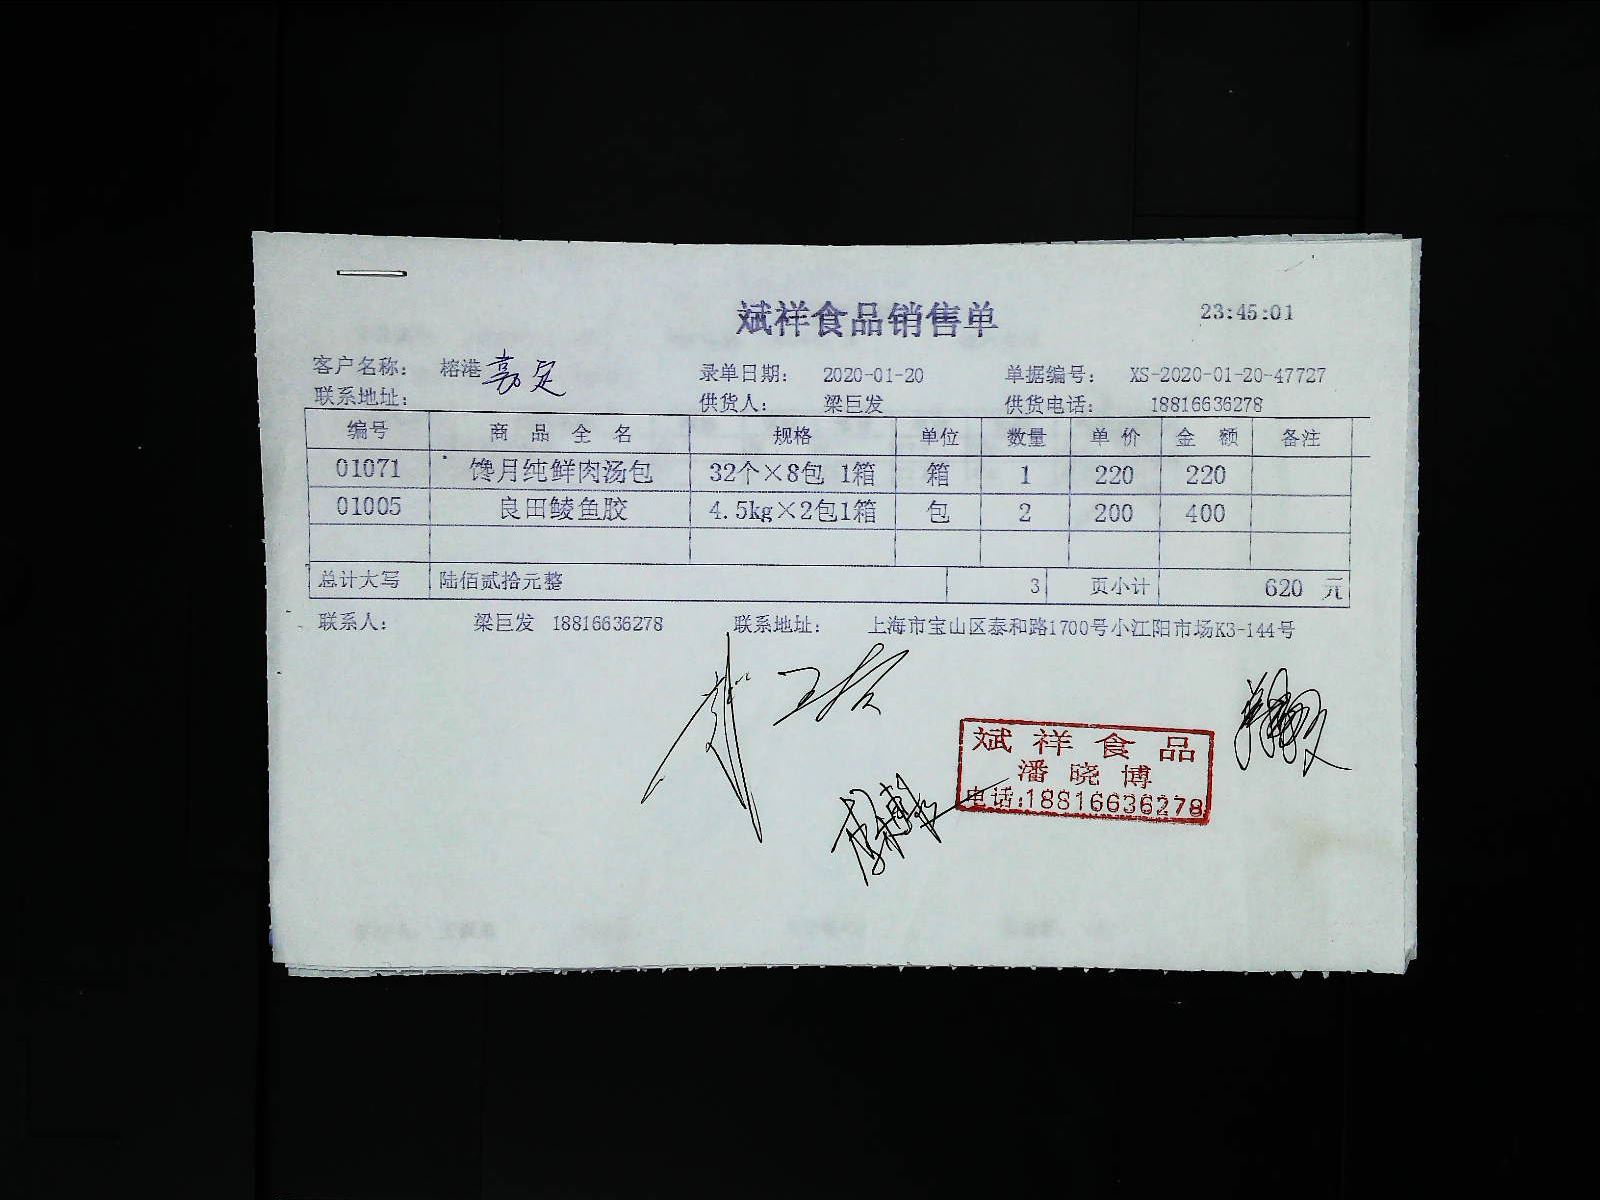 斌祥食品销售单 23:45:01
客户名称： 榕港 嘉定 录单日期： 2020-01-20 单据编号： XS-2020-01-20-47727
联系地址： 供货人： 梁巨发 供货电话： 18816636278
编号 商品全名 规格 单位 数量 单价 金额 备注
01071 馋月纯鲜肉汤包 32个×8包 1箱 箱 1 220 220
01005 良田鲮鱼胶 4.5kg×2包1箱 包 2 200 400
总计大写 陆佰贰拾元整 3 页小计 620 元
联系人： 梁巨发 18816636278 联系地址： 上海市宝山区泰和路1700号小江阳市场K3-144号
斌祥食品
潘晓博
电话:18816636278